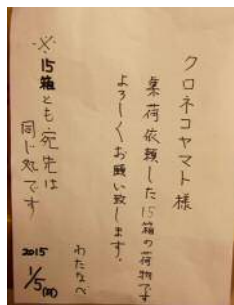 クロネコヤマト様
集荷依頼した15箱の荷物です
よろしくお願い致します.
わたなべ
※15箱とも宛先は
同じ処です
2015
1/5(月)